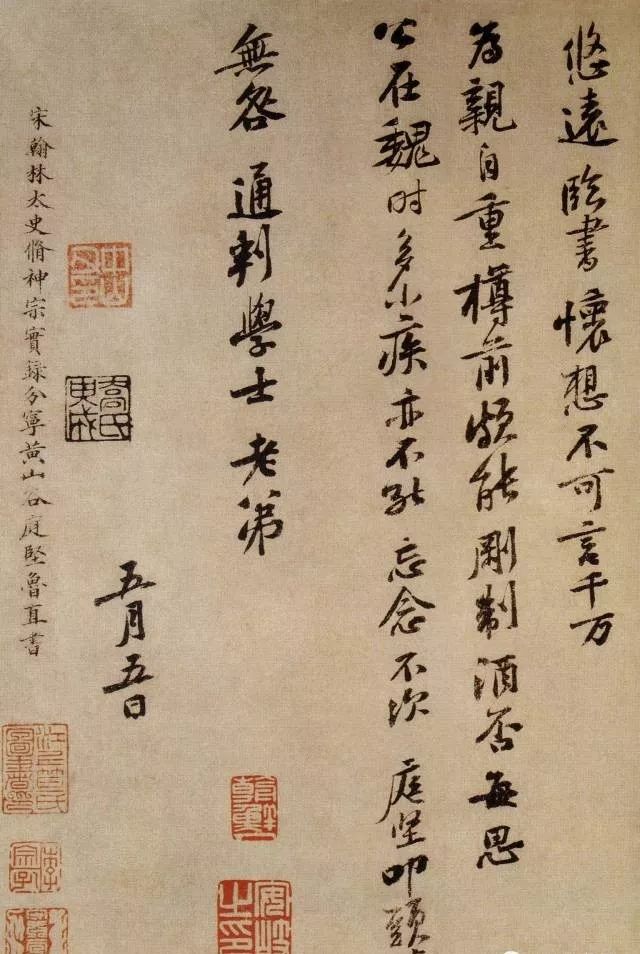 悠遠臨書懷想不可言千万
為親自重樽前頗能剛制酒否每思
公在魏时多小疾亦不能忘念不次 庭坚叩頭
無咎通判學士老弟
五月五日
宋翰林太史脩神宗實錄分寧黃山谷庭堅魯直書
喬氏